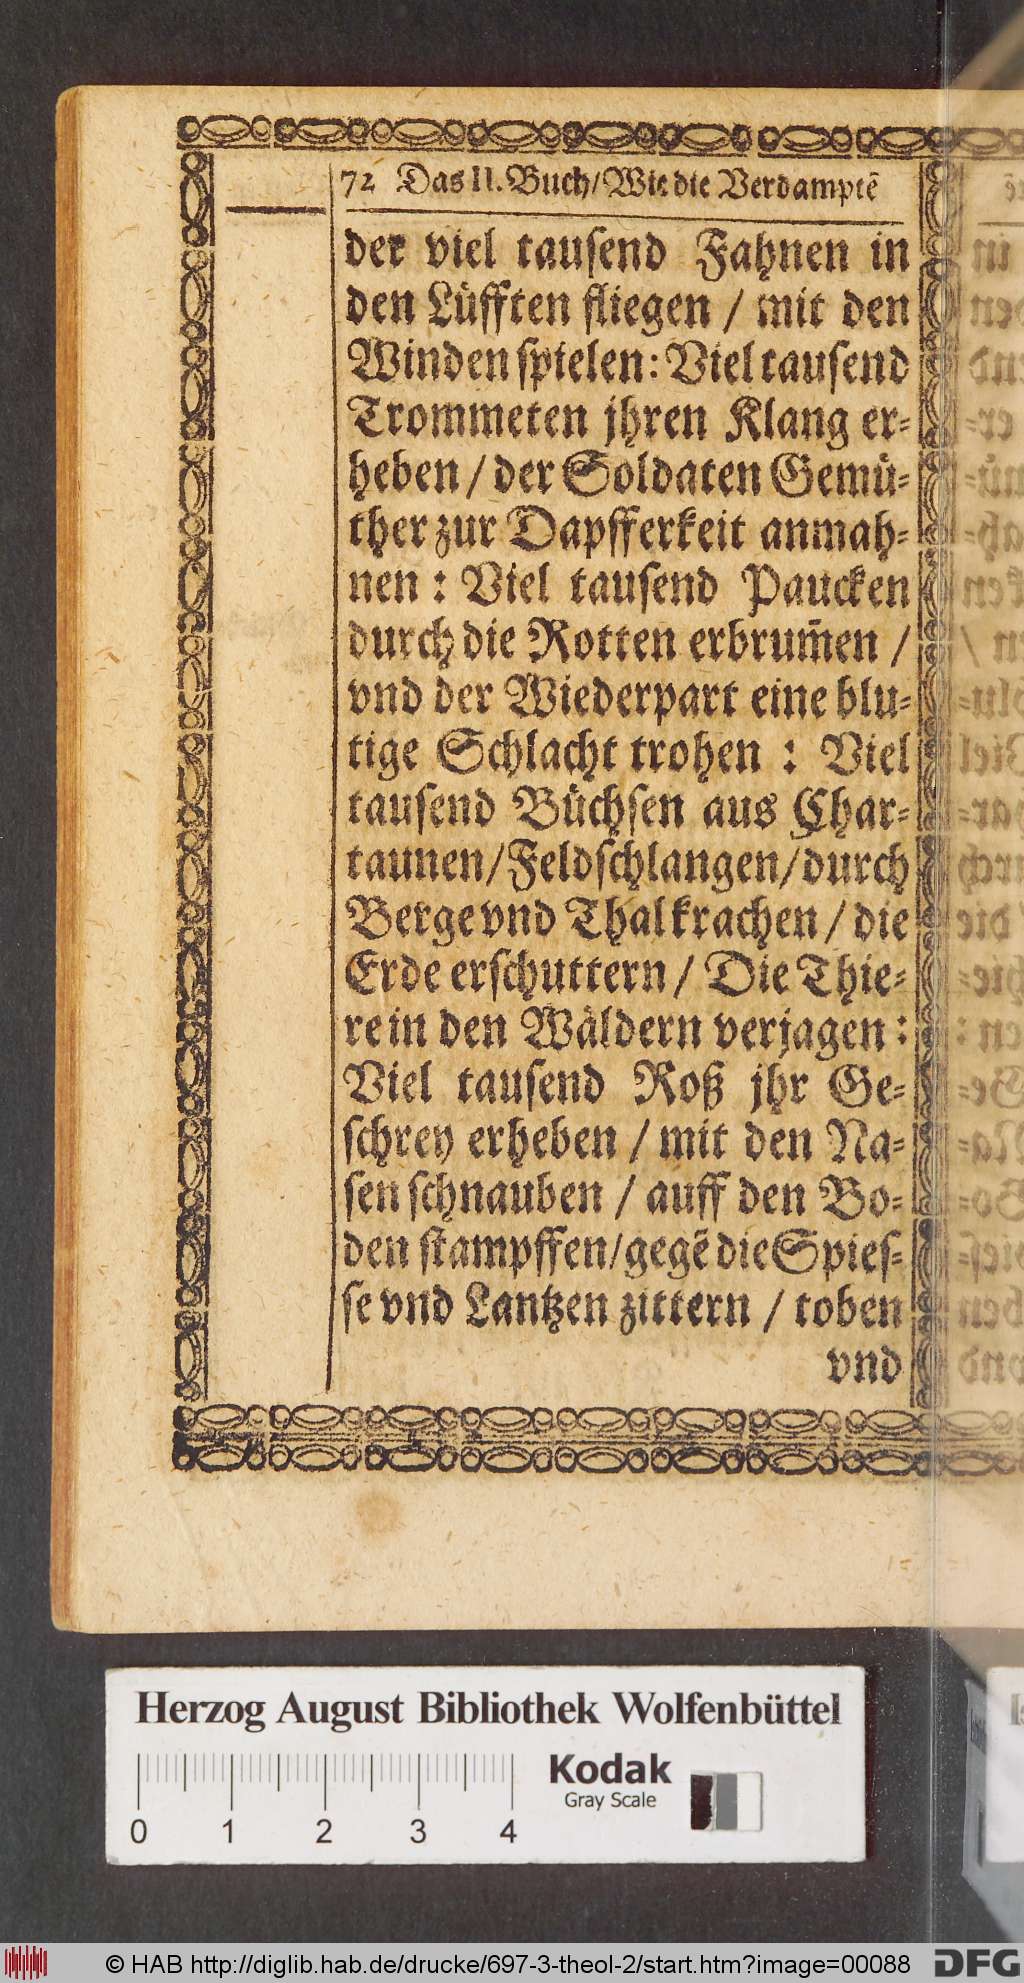 72 Das II. Buch/Wie die Verdamptẽ
der viel tauſend Fahnen in
den Lüfften fliegen / mit den
Winden ſpielen: Viel tauſend
Trommeten jhren Klang er-
heben / der Soldaten Gemü-
ther zur Dapfferkeit anmah-
nen : Viel tauſend Paucken
durch die Rotten erbrum̃en /
vnd der Wiederpart eine blu-
tige Schlacht trohen : Viel
tauſend Büchſen aus Char-
taunen/Feldſchlangen/durch
Berge vnd Thal krachen / die
Erde erſchuttern / Die Thie-
re in den Wäldern verjagen :
Viel tauſend Roß jhr Ge-
ſchrey erheben / mit den Na-
ſen ſchnauben / auff den Bo-
den ſtampffen/gegẽ die Spieſ-
ſe vnd Lantzen zittern / toben
vnd
Herzog August Bibliothek Wolfenbüttel
Kodak
Gray Scale
0 1 2 3 4
© HAB http://diglib.hab.de/drucke/697-3-theol-2/start.htm?image=00088
DFG